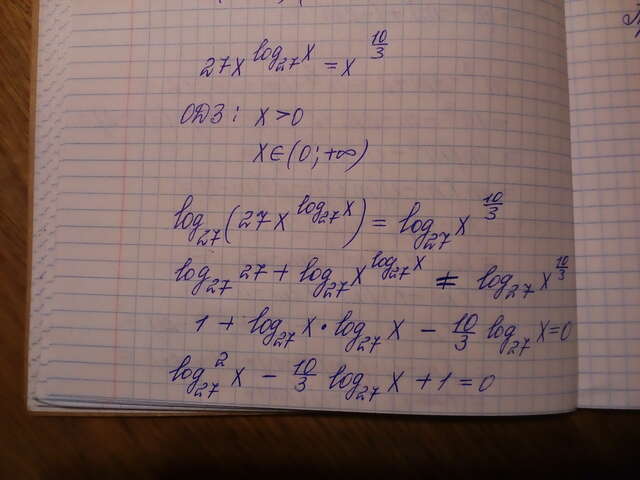 27x^{log_{27}x} = x^{\frac{10}{3}}
ОДЗ: x > 0
x ∈ (0; +∞)
log_{27}(27x^{log_{27}x}) = log_{27}x^{\frac{10}{3}}
log_{27}27 + log_{27}x^{log_{27}x} = log_{27}x^{\frac{10}{3}}
1 + log_{27}x · log_{27}x - \frac{10}{3} log_{27}x = 0
log_{27}^{2}x - \frac{10}{3} log_{27}x + 1 = 0